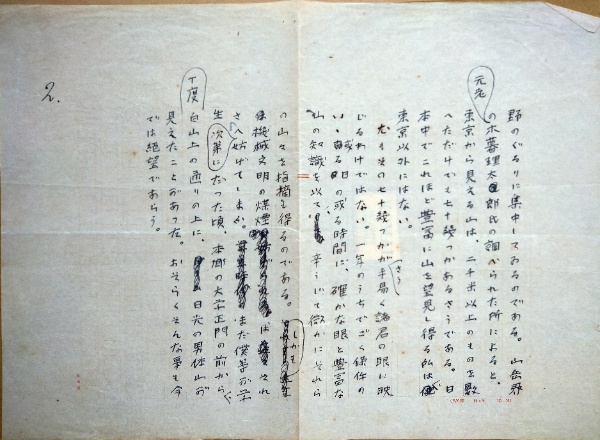 野のぐるりに集中してゐるのである。山岳界
元老
の木暮理太郎氏の調べられた所によると、
東京から見える山は、二千米以上のものを数
へただけでも七十幾つかあるさうである。日
本中でこれほど豊富に山を望見し得る所は
東京以外にはない。
尤もその七十幾つかが手易く諸君の眼に映
さう
じるわけではない。一年のうちでごく条件の
いゝ或る日の或る時間に、確かな眼と豊富な
山の知識を以て、辛うじて微かにそれら
の山々を指摘し得るのである。しかも
機械文明の煤煙は それ
さへ妨げてしまふ。まだ僕等が学
生だつた頃、次第に本郷の大学正門の前から
丁度
白山上の通りの上に、日光の男体山が
見えたことがあつた。おそらくそんな事も今
では絶望であらう。
2.